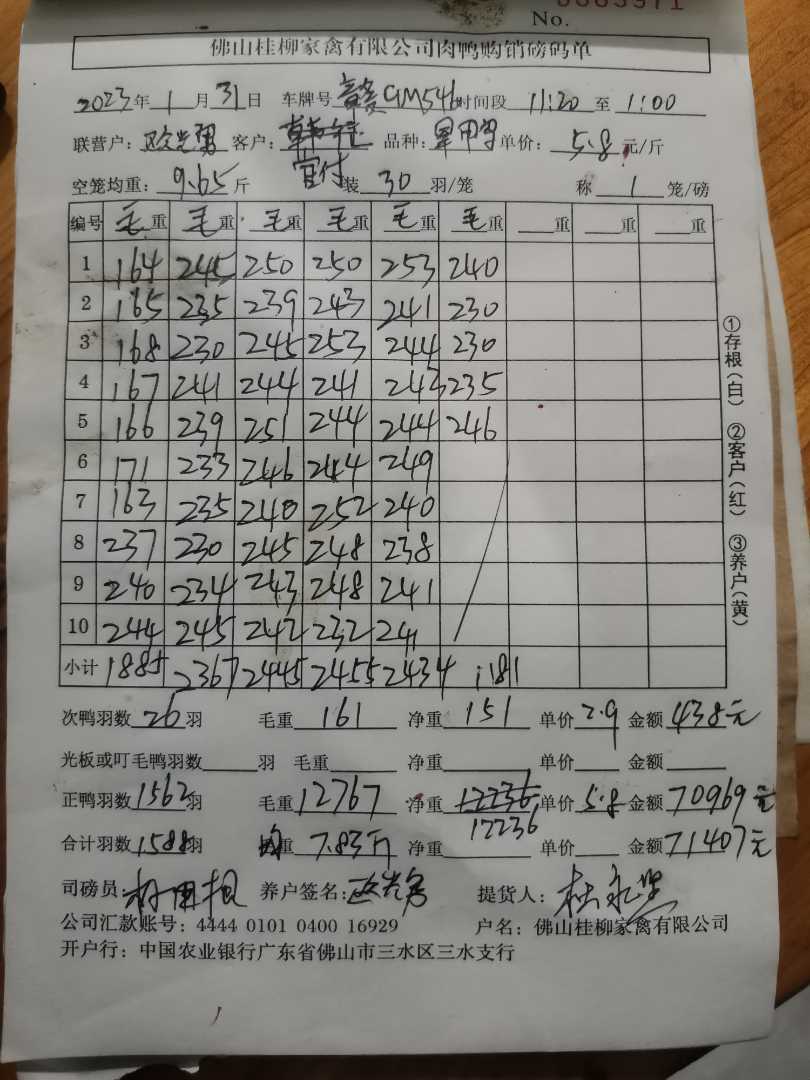 No.
佛山桂柳家禽有限公司肉鸭购销磅码单
2023年 1 月 31 日 车牌号 GM546 时间段 11:20 至 1:00
联营户: 欧光勇 客户: 品种: 单价: 5.8 元/斤
空笼均重: 9.65 斤 装 30 羽/笼 称 1 笼/磅
编号 毛重 毛重 毛重 毛重 毛重 毛重 重 重 重
1 164 245 250 250 253 240
2 165 235 239 243 241 230
3 168 230 245 253 244 230
4 167 241 244 241 243 235
5 166 239 251 244 244 246
6 171 233 246 244 249
7 163 235 240 252 240
8 237 230 245 248 238
9 240 234 243 248 241
10 244 245 242 232 241
小计 1885 2367 2445 2455 2434 1181
①存根(白) ②客户(红) ③养户(黄)
次鸭羽数 26 羽 毛重 161 净重 151 单价 2.9 金额 438元
光板或叮毛鸭羽数 羽 毛重 净重 单价 金额
正鸭羽数 1562 羽 毛重 12767 净重 12236 单价 5.8 金额 70969元
12236
合计羽数 1588 羽 均重 7.83斤 净重 单价 金额 71407元
司磅员: 养户签名: 欧光勇 提货人: 杜永坚
公司汇款账号: 4444 0101 0400 16929 户名: 佛山桂柳家禽有限公司
开户行: 中国农业银行广东省佛山市三水区三水支行